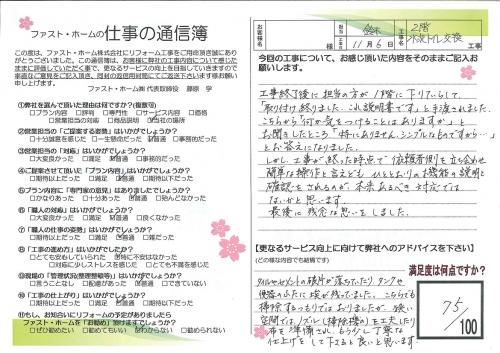 ファスト・ホームの仕事の通信簿
この度は、ファスト・ホーム株式会社にリフォーム工事をご用命頂き誠にあり
がとうございました。この通信簿は、お客様に弊社の工事内容について感じた
ままに評価していただく事で、更なるサービスの向上を目指していきますので
率直なご意見をご記入頂き、同封の返信用封筒にてご送付下さいます様お願い
申し上げます。
ファスト・ホーム㈱ 代表取締役
①弊社を選んで頂いた理由は何ですか?(複数可)
プラン内容 評判 専門性 サービス内容 価格
営業担当の対応 商品説明 会社の場所
②営業担当の「ご提案する姿勢」はいかがでしょうか?
十分誠意を感じた 一生懸命だった 普通 事務的だった
③営業担当の「対応」はいかがでしょうか?
大変良かった 満足 普通 事務的だった
④ご提案させて頂いた「プラン内容」はいかがでしょうか?
期待以上だった 満足 普通 期待以下だった
⑤プラン内容に「専門家の意見」はありましたでしょうか?
かなりあった 十分あった 普通 あまり感じなかった
⑥「職人の対応」はいかがでしょうか?
大変良かった 満足 普通 良くなかった
⑦「職人の仕事の姿勢」はいかがでしょうか?
期待以上だった 満足 普通 雑だった
⑧「工事の進め方」はいかがでしたか?
とても安心していられた 特に不安はなかった
対応に少しストレスを感じた とても不満を感じた
⑨現場の「管理状況(整理整頓等)」はいかがでしょうか?
言うことなし 配慮があった 普通 できていない
⑩「工事の仕上り」はいかがでしょうか?
期待以上だった 満足 普通 期待以下だった
⑪もし、お知合いにリフォームの予定がありましたら
ファスト・ホームを「お勧め」頂けますでしょうか?
ぜひ勧めたい 勧めてもいい わからない 勧められない
お客様名 様
担当 鈴木
工事 2階
11月6日 工事
今回の工事について、お感じ頂いた内容をそのままご記入お
願いします。
工事終了後に担当の方が1階に下りていらして、
「取付け終りました。これ説明書です」と手渡されました。
こちらから「何か気をつけることはありますか」と
お聞きしたところ「特にありません、シンプルなものですから…」
とお答えになりました。
しかし、工事が終った時点で依頼者側を立ち会わせ
簡単な操作と言えどもひととおりの機能の説明と
確認をされるのが、本来あるべき対応では
ないかと思います。
最後に残念な思いをしました。
【更なるサービス向上に向けて弊社へのアドバイスを下さい】
(どの様な内容でも結構です)
タイルやセメントの破片が落ちていたり、タンクや
便器のふたに埃が残っていました。こちらでも
掃除するつもりではおりましたが、狭い
空間ではノズル(掃除機の)を工夫したり
布を準備され、もう少し丁寧な
仕上げをして下さると良いと思います。
満足度は何点ですか?
75
/100